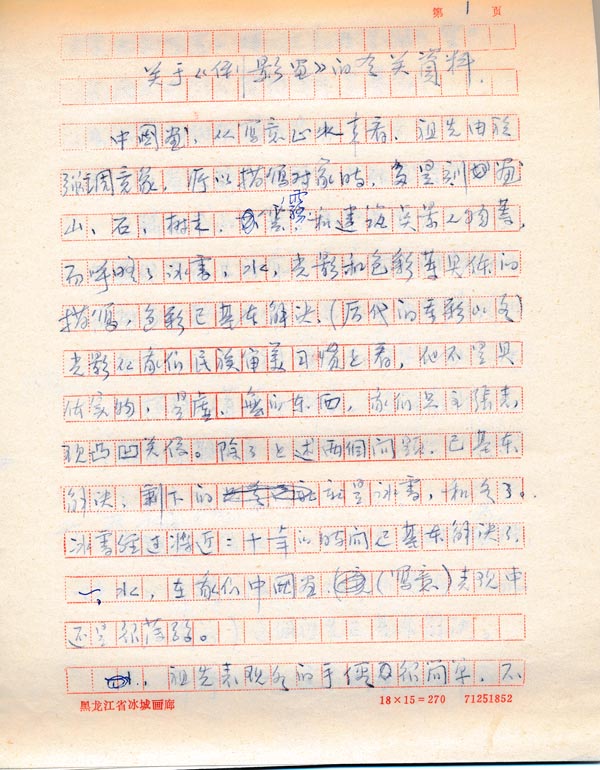 第 1 页
关于《倒影画》的有关资料.
中国画,从写意山水来看,祖先由于
强调意象,所以描绘对象时,多是刻画
山、石、树木、云雾、和建筑点景人物等,
而呼略了冰雪,水,光影和色彩等具体的
描绘,色彩已基本解决,(历代的重彩山水)
光影从我们民族审美习惯上看,他不是具
体实物,是虚、无的东西,我们只主张表
现凸凹关系。除了上述两個问题,已基本
解决,剩下的就是冰雪,和水了。
冰雪经过将近二十年的时间已基本解决了,
一、水,在我们中国画、(写意)表现中
还是很落后。
祖先表现水的手法很简单,不
黑龙江省冰城画廊 18×15=270 71251852